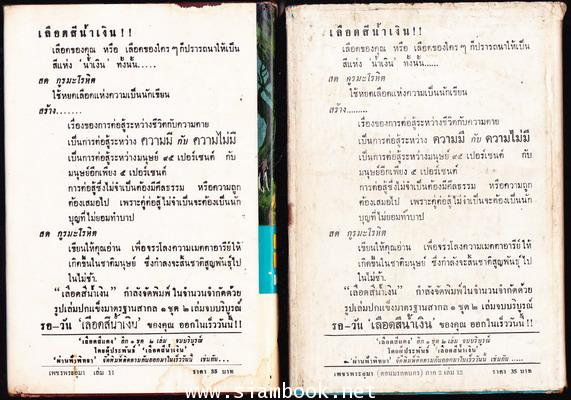 เลือดสีน้ำเงิน!!
เลือดของคุณ หรือ เลือดของใครๆ ก็ปรารถนาให้เป็น
สีแห่ง 'น้ำเงิน' ทั้งนั้น.....
สด กูรมะโรหิต
ใช้หยดเลือดแห่งความเป็นนักเขียน
สร้าง.......
เรื่องของการต่อสู้ระหว่างชีวิตกับความตาย
เป็นการต่อสู้ระหว่าง ความมี กับ ความไม่มี
เป็นการต่อสู้ระหว่างมนุษย์ ๙๕ เปอร์เซนต์ กับ
มนุษย์อีกเพียง ๕ เปอร์เซนต์
การต่อสู้ซึ่งไม่จำเป็นต้องมีศีลธรรม หรือความถูก
ต้องเสมอไป เพราะคู่ต่อสู้ไม่จำเป็นจะต้องเป็นนัก
บุญที่ไม่ยอมทำบาป
สด กูรมะโรหิต
เขียนให้คุณอ่าน เพื่อจรรโลงความเมตตาอารีย์ให้
เกิดขึ้นในชาติมนุษย์ ซึ่งกำลังจะสิ้นชาติสูญพันธุ์ไป
ในไม่ช้า.
"เลือดสีน้ำเงิน" กำลังจัดพิมพ์ในจำนวนจำกัดด้วย
รูปเล่มปกแข็งมาตรฐานสากล ๑ ชุด ๒ เล่มจบบริบูรณ์
รอ-วัน 'เลือดสีน้ำเงิน' ของคุณ ออกในเร็ววันนี้!!
'เลือดสีแดง' อีก ๑ ชุด ๒ เล่ม จบบริบูรณ์
โดยผู้ประพันธ์ 'เลือดสีน้ำเงิน'
เพชรพระอุมา เล่ม 11
ราคา 35 บาท
เลือดสีน้ำเงิน!!
เลือดของคุณ หรือ เลือดของใครๆ ก็ปรารถนาให้เป็น
สีแห่ง 'น้ำเงิน' ทั้งนั้น.....
สด กูรมะโรหิต
ใช้หยดเลือดแห่งความเป็นนักเขียน
สร้าง.........
เรื่องของการต่อสู้ระหว่างชีวิตกับความตาย
เป็นการต่อสู้ระหว่าง ความมี กับ ความไม่มี
เป็นการต่อสู้ระหว่างมนุษย์ ๙๕ เปอร์เซนต์ กับ
มนุษย์อีกเพียง ๕ เปอร์เซนต์
การต่อสู้ซึ่งไม่จำเป็นต้องมีศีลธรรม หรือความถูก
ต้องเสมอไป เพราะคู่ต่อสู้ไม่จำเป็นจะต้องเป็นนัก
บุญที่ไม่ยอมทำบาป
สด กูรมะโรหิต
เขียนให้คุณอ่าน เพื่อจรรโลงความเมตตาอารีย์ให้
เกิดขึ้นในชาติมนุษย์ ซึ่งกำลังจะสิ้นชาติสูญพันธุ์ไป
ในไม่ช้า.
"เลือดสีน้ำเงิน" กำลังจัดพิมพ์ในจำนวนจำกัดด้วย
รูปเล่มปกแข็งมาตรฐานสากล ๑ ชุด ๒ เล่มจบบริบูรณ์
รอ-วัน 'เลือดสีน้ำเงิน' ของคุณ ออกในเร็ววันนี้!!
'เลือดสีแดง' อีก ๑ ชุด ๒ เล่ม จบบริบูรณ์
โดยผู้ประพันธ์ 'เลือดสีน้ำเงิน'
เพชรพระอุมา (ตอนมรกตนคร) ภาค 2 เล่ม 12
ราคา 35 บาท
www.siambook.net